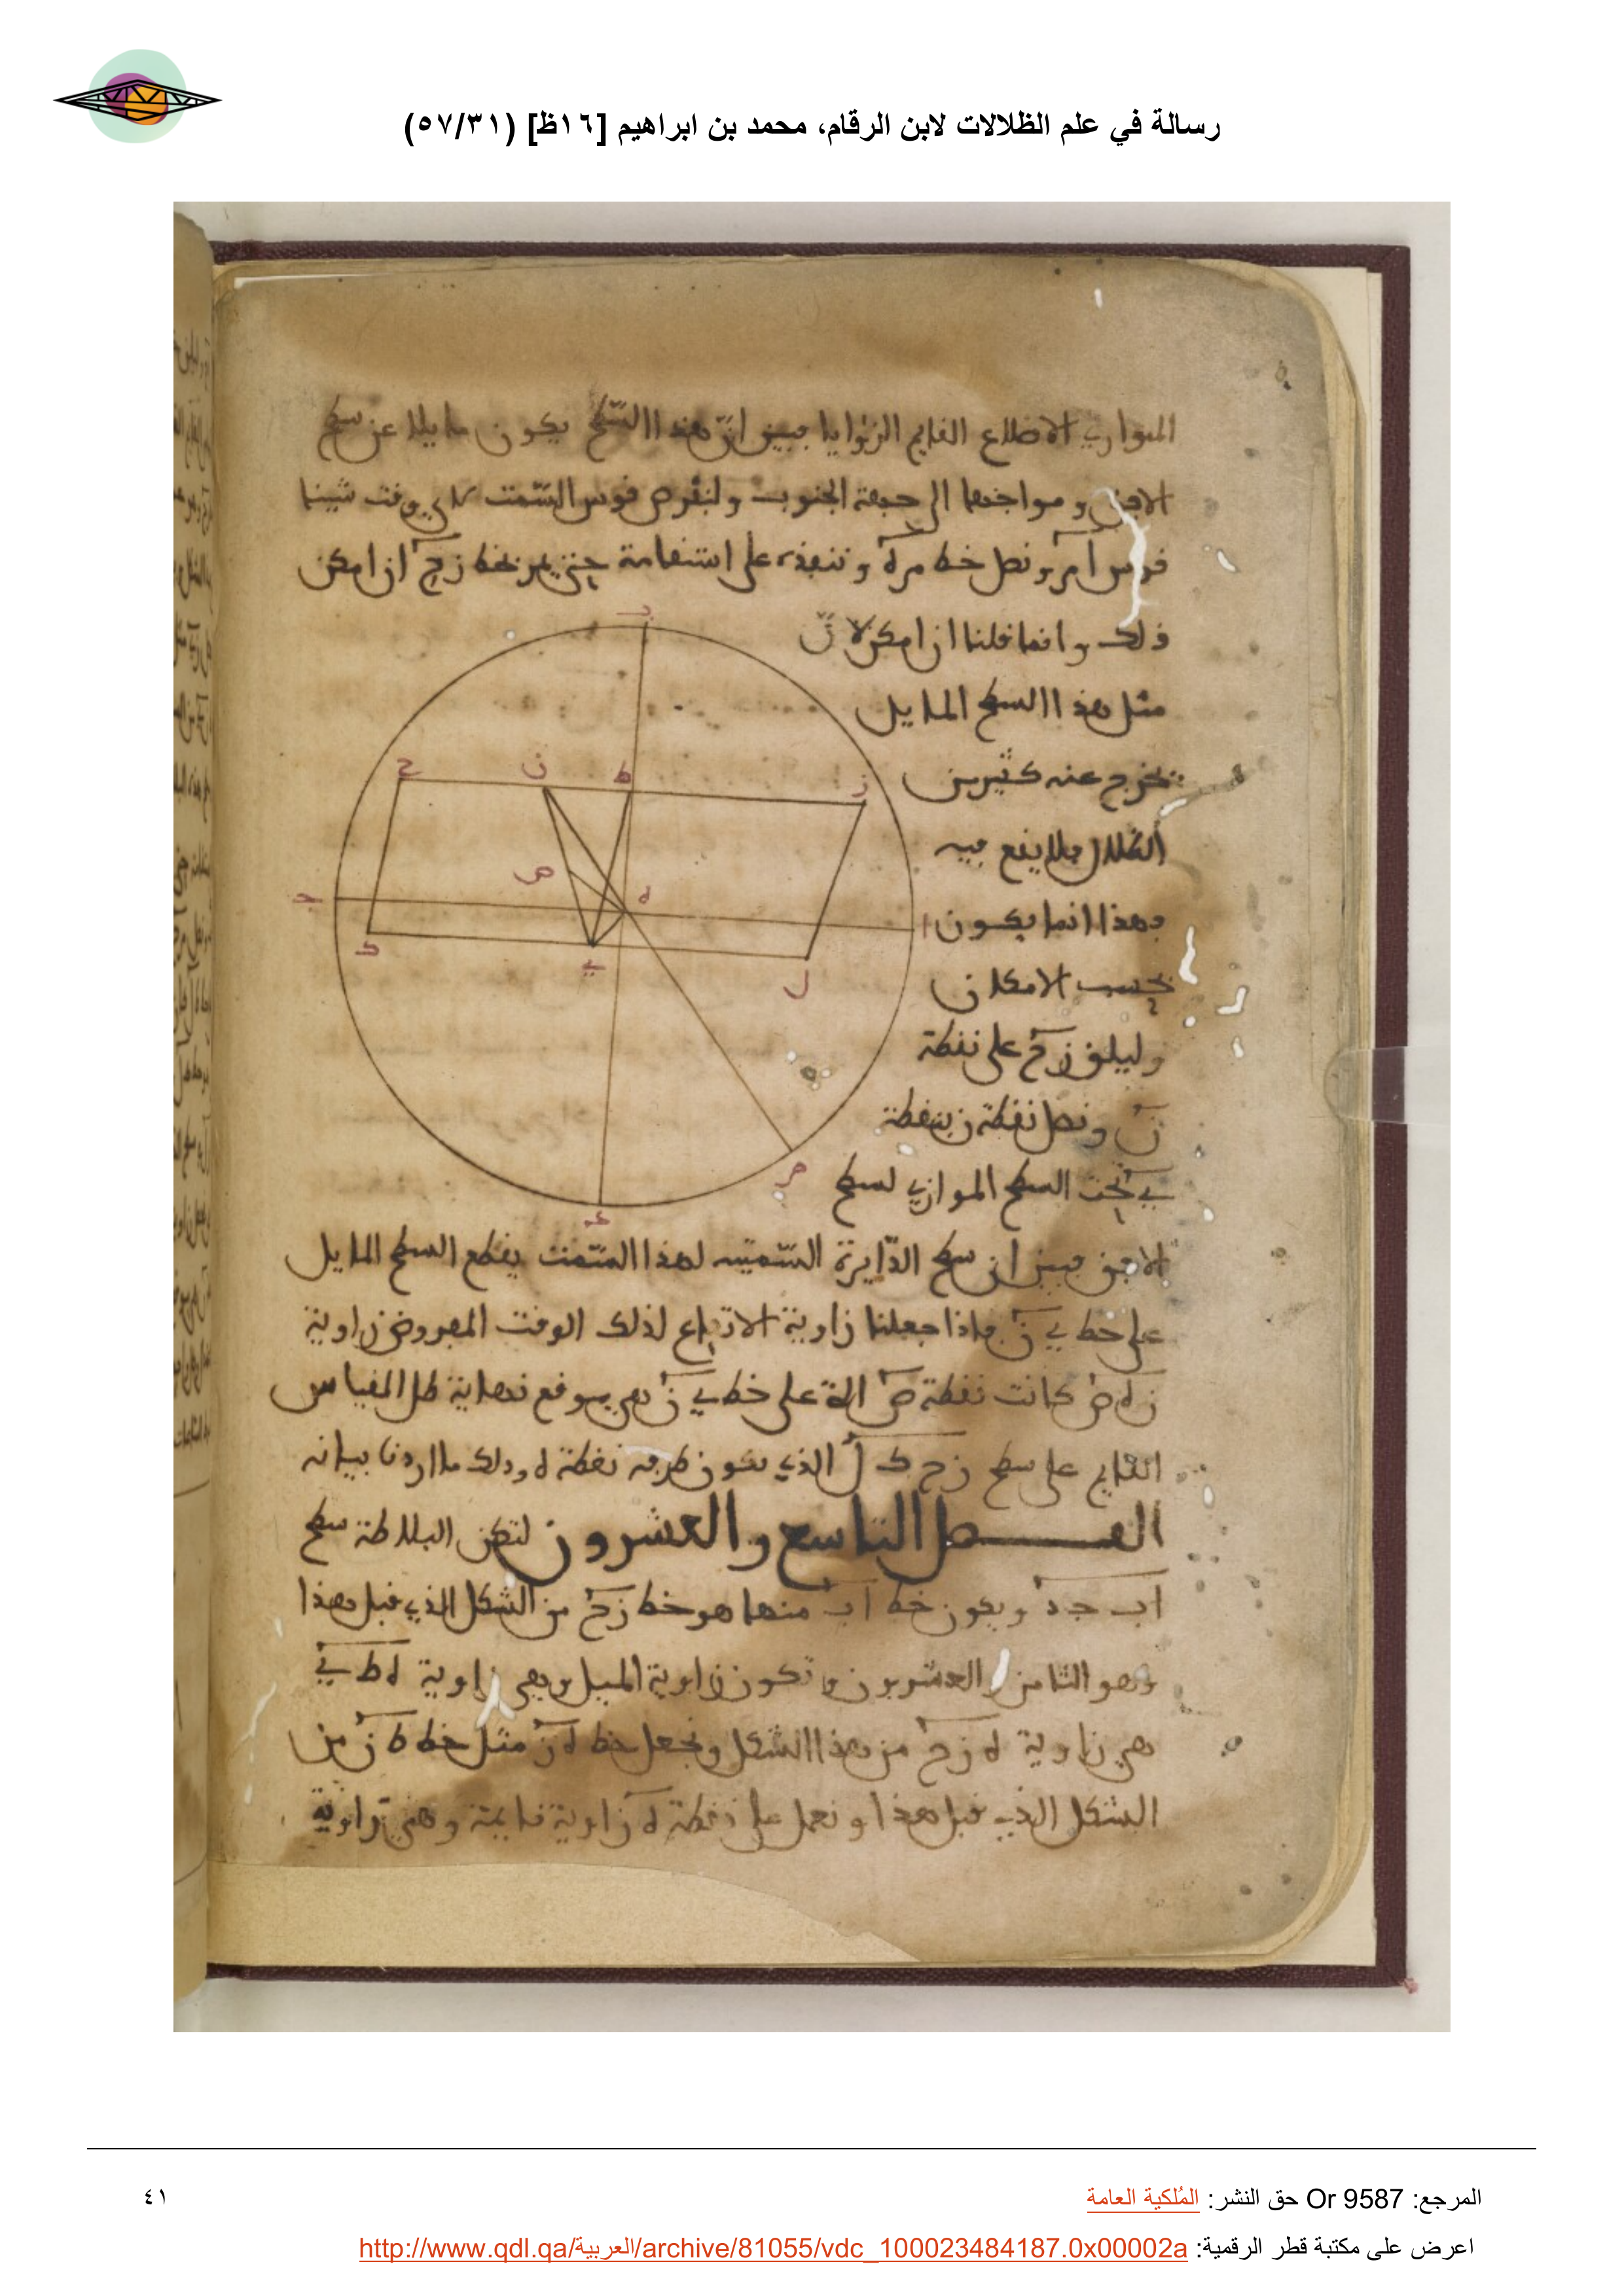 رسالة في علم الظلالات لابن الرقام، محمد بن ابراهيم [١٦ظ] (٥٧/٣١)
المتوازي الاضلاع القايم الزوايا فبين ان هذا السطح يكون مايلا عن سطح
الافق و مواجها الى جهة الجنوب ولنفرض قوس السمت لاي وقت شينا
قوس ا م ونصل خط م ه وننفذه على استقامة حتى يمر بخط ز ح ان امكن
ذلك وانما قلنا ان امكن لان
مثل هذا السطح المايل
تخرج عنه كثير من
الظلال فلا يقع فيه
فهذا انما يكون
بحسب الامكان
وليلق ز ح على نقطة
ن ونصل نقطة ن بنقطة
ي تحت السطح الموازي لسطح
الافق فبين ان سطح الدايرة السمتيه لهذا السمت يقطع السطح المايل
على خط ي ن فاذا جعلنا زاوية الارتفاع لذلك الوقت المفروض زاوية
ن ه ص كانت نقطة ص على خط ي ن هي موقع نهاية ظل المقياس
القايم على سطح ز ح ك ل الذي يكون طرفه نقطة ه وذلك ما اردنا بيانه
الفصل التاسع والعشرون لتكن البلاطة سطح
ا ب ج د ويكون خط ا ب منها هو خط ز ح من الشكل الذي قبل هذا
وهو الثامن والعشرون و تكون زاوية الميل وهي زاوية ه ط ي
هي زاوية ه ز ح من هذا الشكل ونجعل خط ه ز مثل خط ط ن من
الشكل الذي قبل هذا ونعمل على نقطة ه زاوية قايمة وهي زاوية
ب
ح ن ط ز
ص ه
ج ا
ك ي ل
م
د
المرجع: Or 9587 حق النشر: المُلكية العامة
٤١
اعرض على مكتبة قطر الرقمية: http://www.qdl.qa/العربية/archive/81055/vdc_100023484187.0x00002a